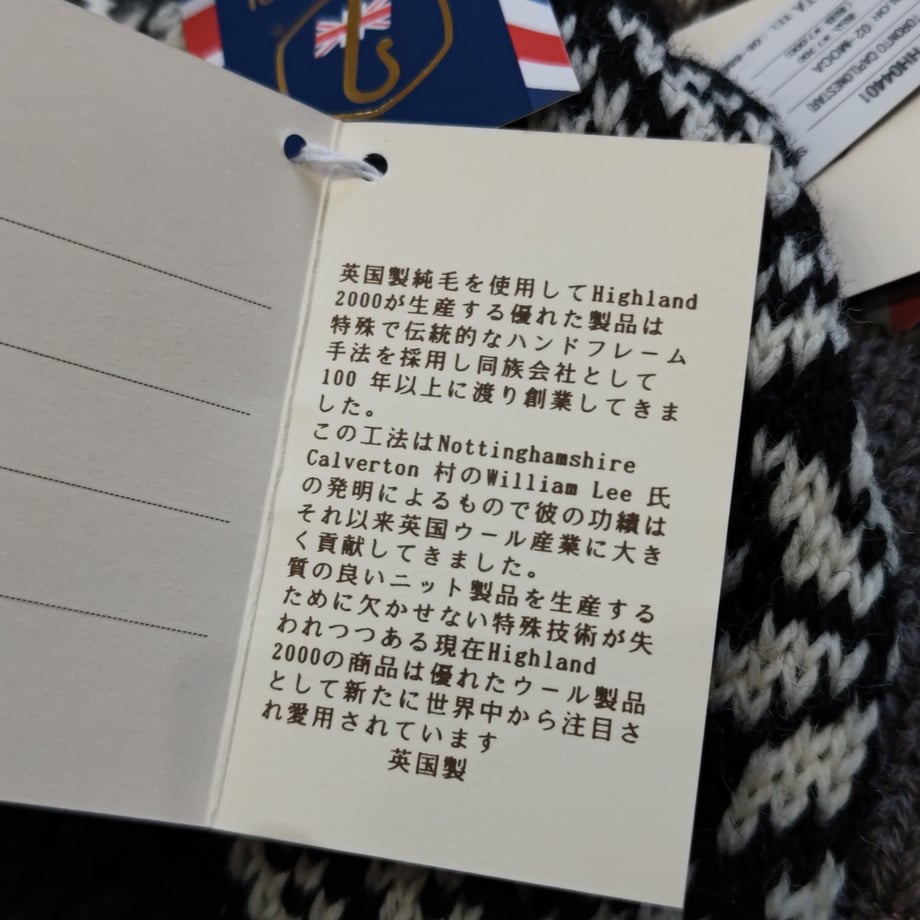 英国製純毛を使用してHighland
2000が生産する優れた製品は
特殊で伝統的なハンドフレーム
手法を採用し同族会社として
100 年以上に渡り創業してきま
した。
この工法はNottinghamshire
Calverton 村のWilliam Lee 氏
の発明によるもので彼の功績は
それ以来英国ウール産業に大き
く貢献してきました。
質の良いニット製品を生産する
ために欠かせない特殊技術が失
われつつある現在Highland
2000の商品は優れたウール製品
として新たに世界中から注目さ
れ愛用されています
英国製